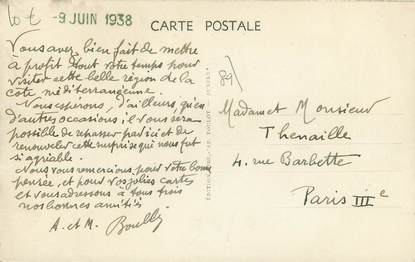 lot -9 JUIN 1938
CARTE POSTALE
Vous avez bien fait de mettre
à profit tout votre temps pour
visiter cette belle région de la
côte méditerranéenne.
Nous espérons, d'ailleurs, qu'en
d'autres occasions, il vous sera
possible de repasser par ici et de
renouveler cette surprise qui nous fut
si agréable.
Nous vous remercions, pour votre bonne
pensée, et pour vos jolies cartes
et vous adressons à tous trois
nos bonnes amitiés
A. et M. Boully
89)
Madame et Monsieur
Thenaille
4, rue Barbette
Paris IIIe